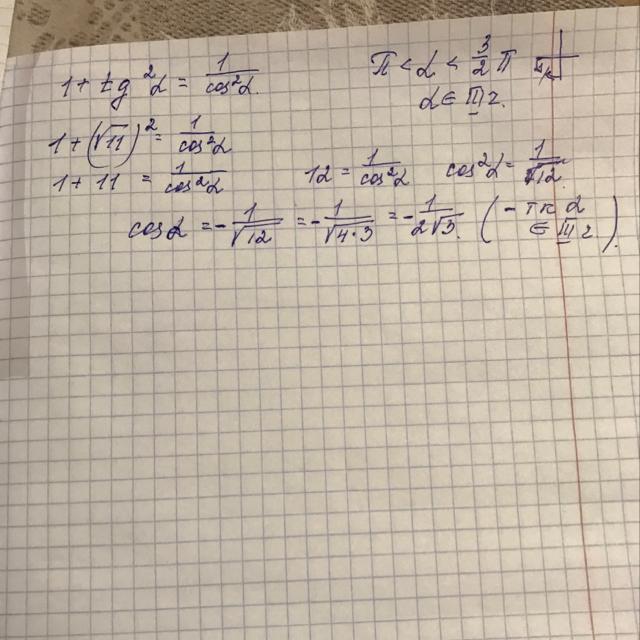 1 + tg²α = 1/cos²α
π < α < 3/2 π
α ∈ III ч.
1 + (√11)² = 1/cos²α
1 + 11 = 1/cos²α 12 = 1/cos²α cos²α = 1/12
cosα = - 1/√12 = - 1/√4·3 = - 1/2√3. (- тк α ∈ III ч).